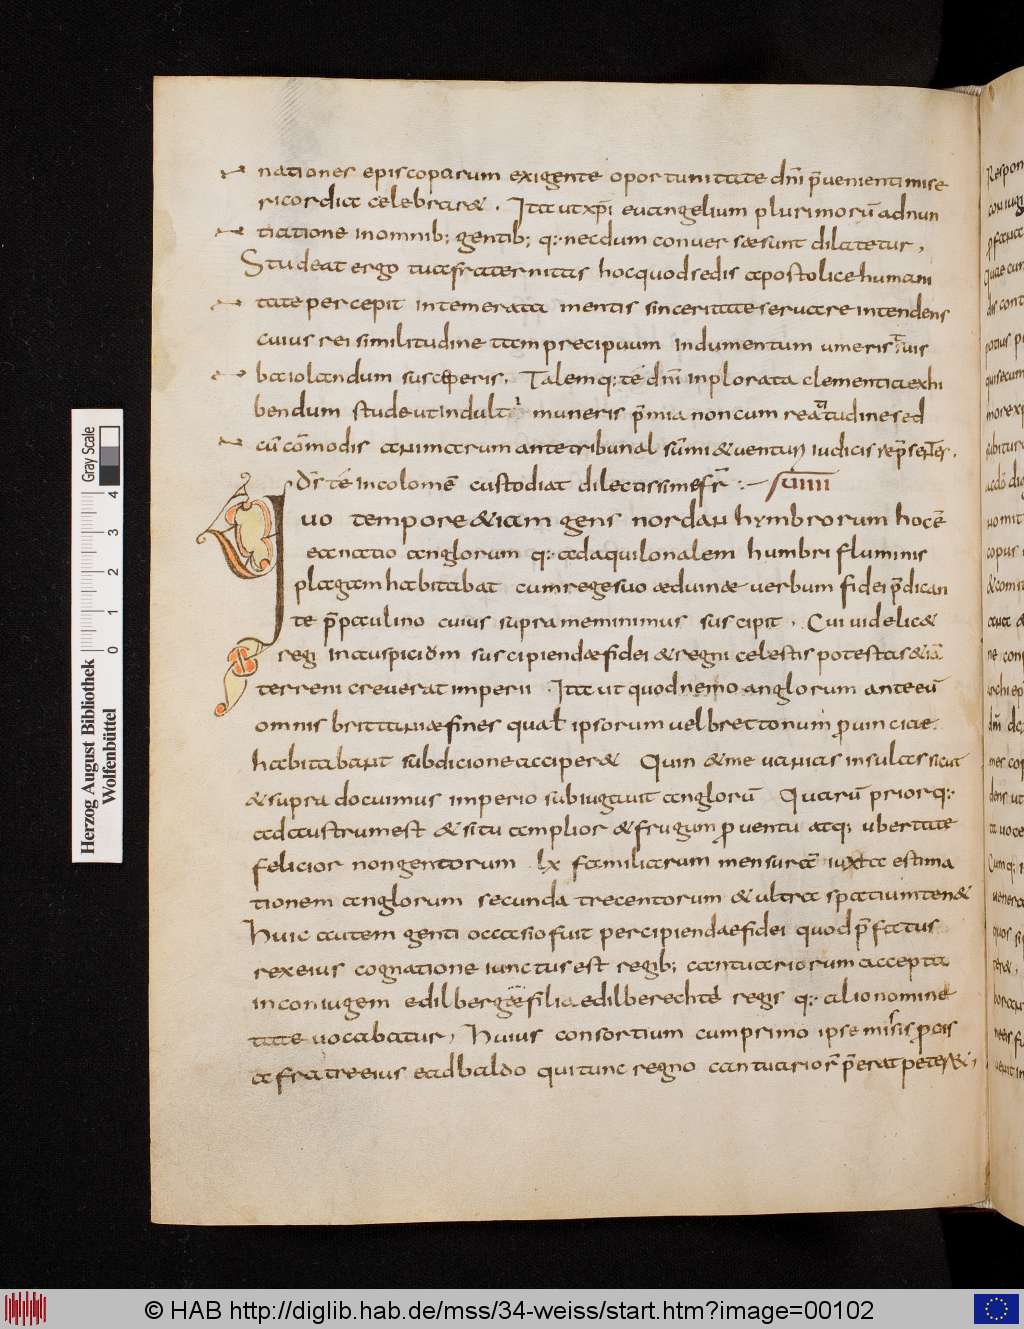 nationes episcoporum exigente oportunitate dn̄i p̄uenienti mise
ricordia celebrare&. Ita ut xp̄i euangelium plurimorū adnun
tiatione in omnib; gentib; q: necdum conuersae sunt dilatetur,
Studeat ergo tua fraternitas hoc quod sedis apostolice humani
tate percepit intemerata mentis sinceritate seruare intendens
cuius rei similitudine tam precipuum indumentum umeris tuis
baiolandum susceperis. Talemq; te dn̄i inplorata clementia exhi
bendum stude ut indulti muneris p̄mia non cum reatitudine sed
cū cōmodis animarum ante tribunal sūmi & uenturi iudicis
d̄s te incolomē custodiat dilectissime fr̄ :- suiiii
Quo tempore & iam gens nordanhymbrorum hoc ē
ea natio anglorum q: ad aquilonalem humbri fluminis
plagam habitabat cum rege suo æduinæ uerbum fidei p̄dican
te p̄ paulino cuius supra meminimus suscipit. Cui uidelic&
regi in auspicium suscipiendae fidei & regni celestis potestas & iā
terreni creuerat imperii. Ita ut quod nemo anglorum ante eū
omnis brittaniæ fines qua ƚ ipsorum uel brettonum p̱uinciae
habitabant sub dicione acciper& Quin & meuanias insulas sicut
& supra docuimus imperio subiugauit anglorū Quarū prior q:
ad austrum est & situ amplior & frugum p̱uentu atq; ubertate
felicior nongentorum lx familiarum mensurā iuxta estima
tionem anglorum secunda trecentorum & ultra spatium ten&
Huic autem genti occasio fuit percipiendae fidei quod p̄fatus
rex eius cognatione iunctus est regib; cantuariorum accepta
in coniugem edilbergæ filia edilberechte regis q: alio nomine
tate uocabatur, Huius consortium cum primo ipse missis p̱cis
a fratre eius eadbaldo qui tunc regno cantuarior̄ p̄erat peter&,
Respon
coniugi
p̱fana
quae cun
diis cont
potius p
quisecum
more xp
abitur
uomit
copus
ne con
archiep
mer cop
dens ut
Cumq; i
uenera
quos si
Herzog August Bibliothek
Wolfenbüttel
Gray Scale
0 1 2 3 4
© HAB http://diglib.hab.de/mss/34-weiss/start.htm?image=00102